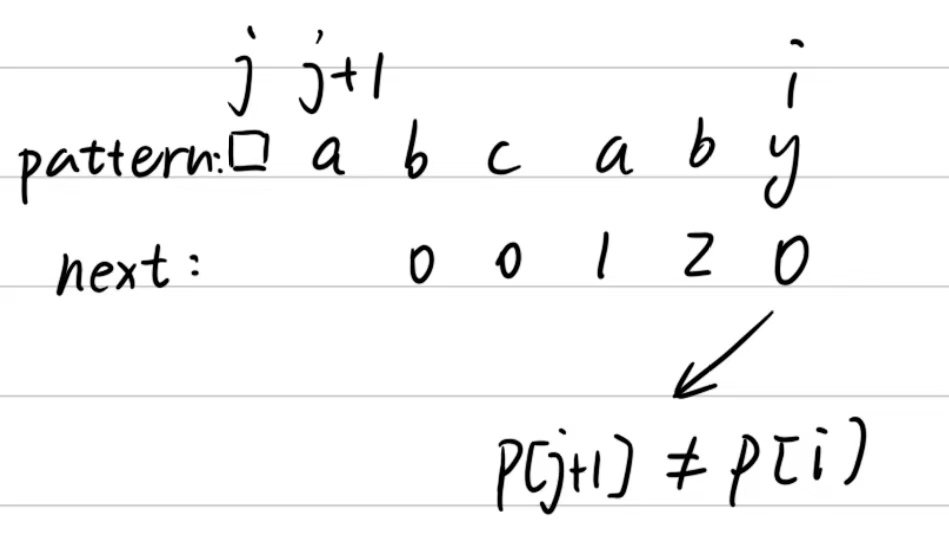 j j+1 i
pattern:□ a b c a b y
next: 0 0 1 2 0
P[j+1] ≠ P[i]